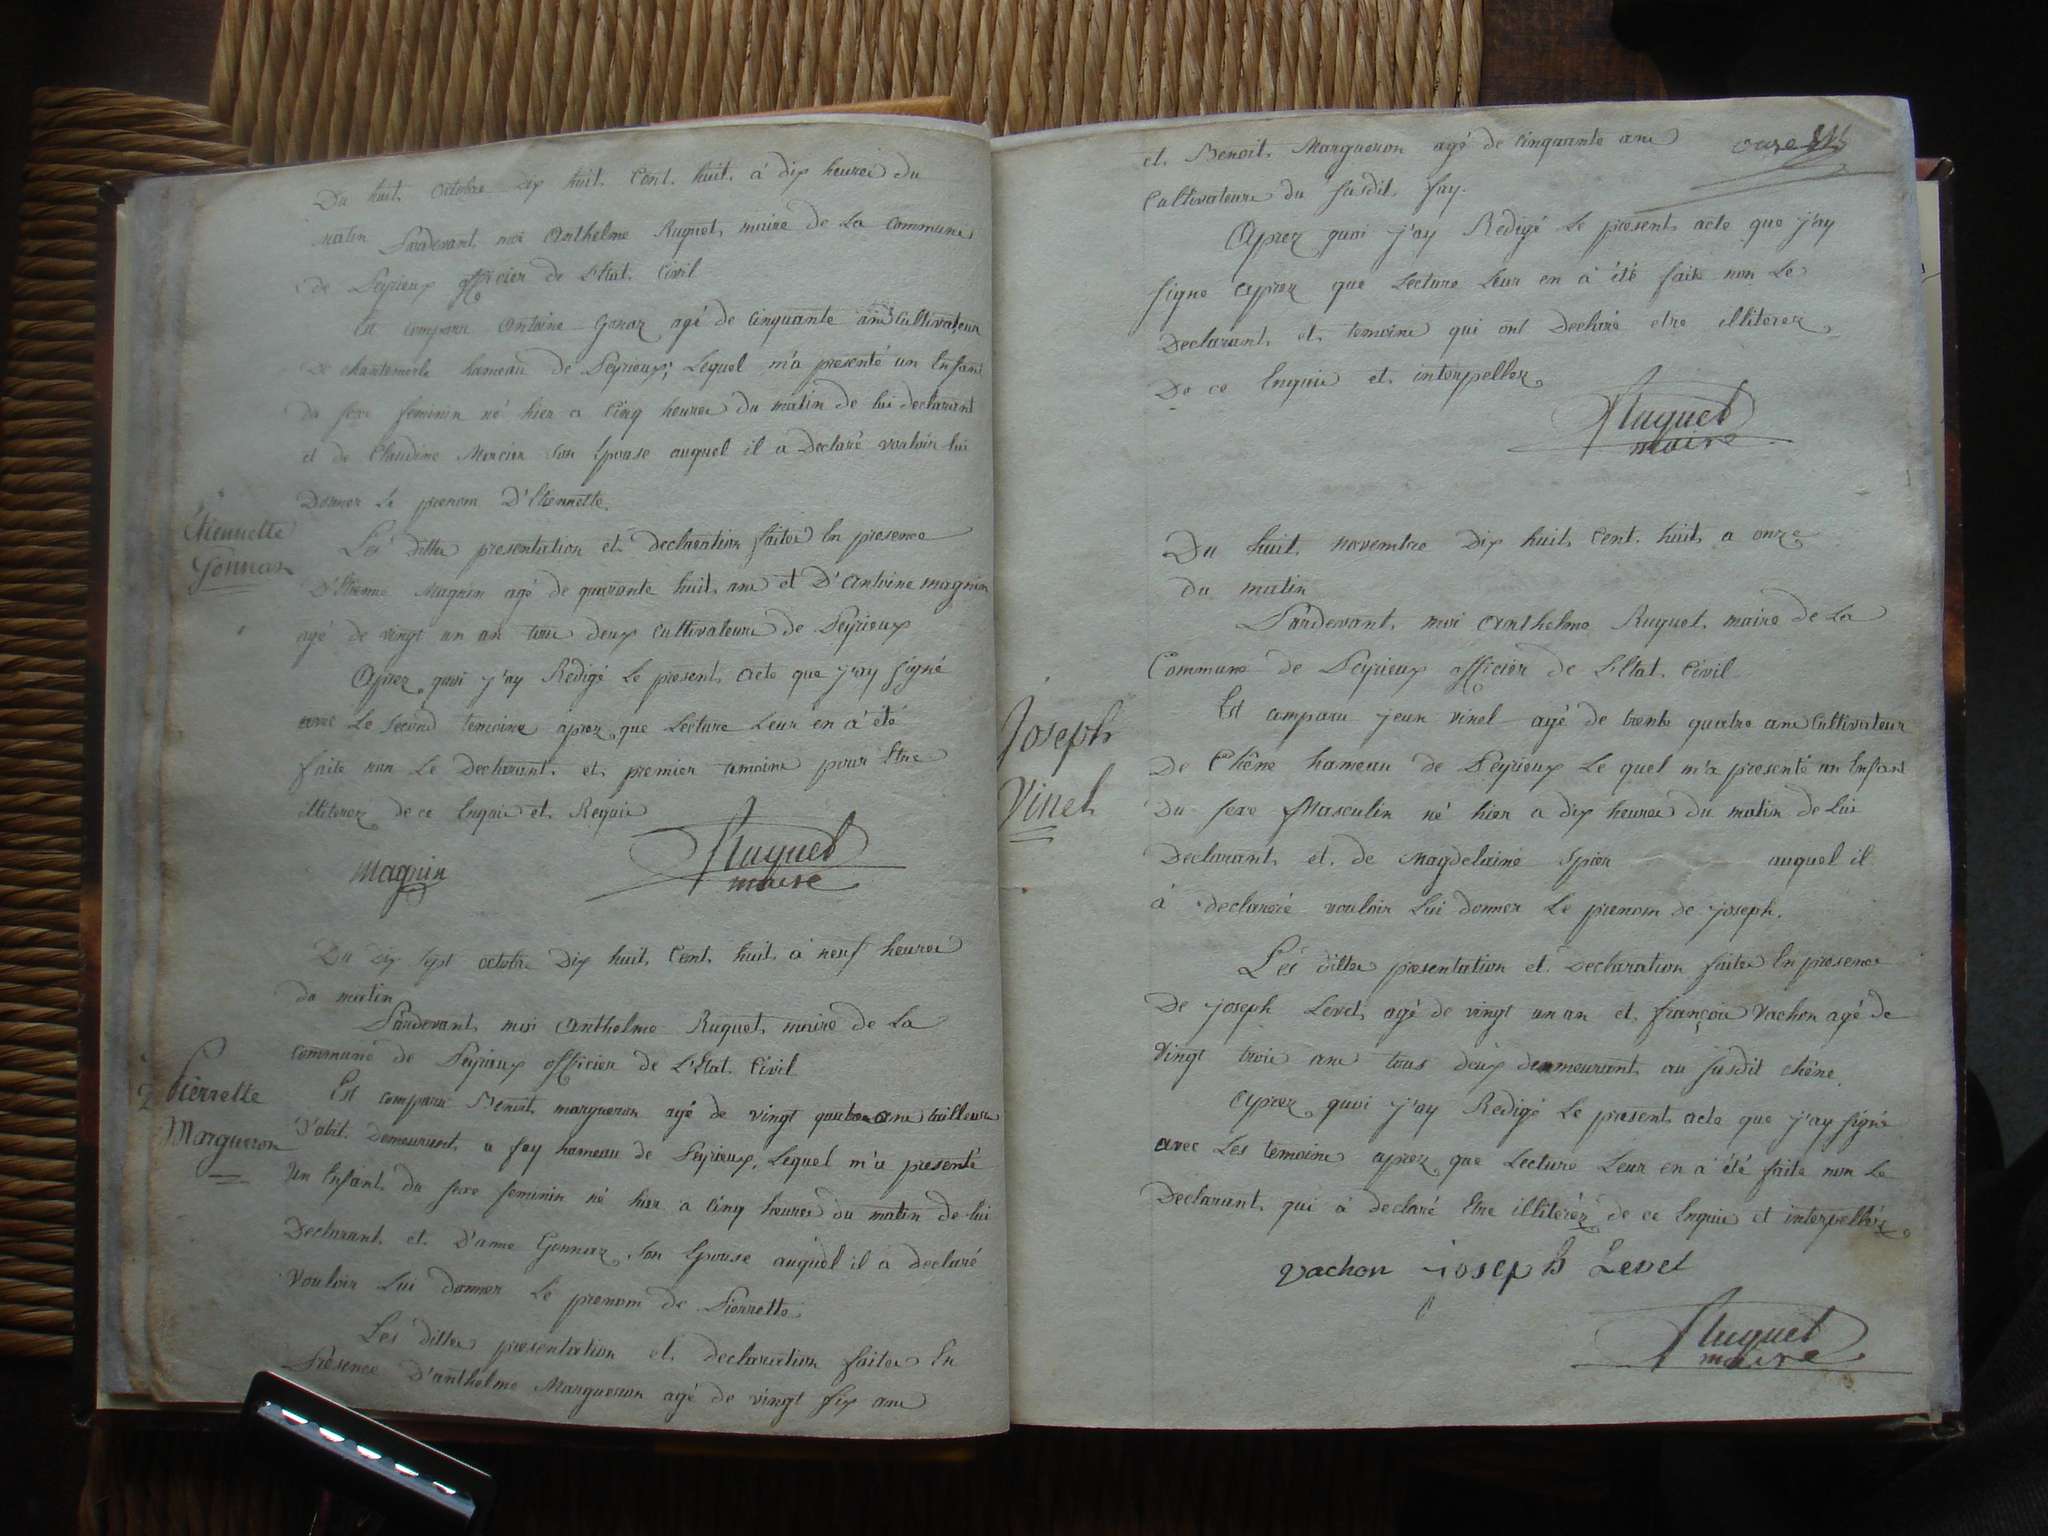 Du huit octobre dix huit Cent huit à dix heures du
matin Pardevant moi anthelme Ruguet maire de La commune
de Peyrieux officier de L'Etat Civil
Est comparu antoine Gonaz agé de cinquante ans Cultivateur
De chantemerle hameau de Peyrieux, Lequel m'a presenté un Enfant
du sexe feminin né hier a Cinq heures du matin de lui declarant
et de Claudine Mercier son Epouse auquel il a declaré vouloir lui
Donner Le prenom D'Etiennette.
Etiennette
Gonnaz
Les dittes presentation et declaration faites En presence
D'Etienne Magnin agé de quarante huit ans et D'antoine magnin
agé de vingt un an tous deux cultivateurs de Peyrieux
Aprez quoi j'ay Redigé Le present acte que j'ay signé
avec Le second temoins aprez que Lecture Leur en a été
faite non Le Declarant et premier temoins pour Etre
illiterez de ce Enquis et Requis
Magnin Ruguet
maire
Du Dix sept octobre Dix huit Cent huit à neuf heures
du matin
Pardevant moi anthelme Ruguet maire de La
Commune de Peyrieux officier de L'Etat Civil
Pierrette
Margueron
Est comparu Benoit margueron agé de vingt quatre ans tailleurs
D'abit Demeurant a fay hameau de Peyrieux, Lequel m'a presenté
Un Enfant du sexe feminin né hier a Cinq heures du matin de lui
Declarant et D'anne Gonnaz son Epouse auquel il a declaré
Vouloir Lui donner Le prenom de Pierrette
Les dittes presentation et declaration faites En
Presence D'anthelme Margueron agé de vingt six ans
et Benoit Margueron agé de Cinquante ans onze
Cultivateurs du susdit fay.
Aprez quoi j'ay Redigé Le present acte que j'ay
signé aprez que Lecture Leur en a été faite non Le
Declarant et temoins qui ont Declaré etre illiterez
De ce Enquis et interpellez
Ruguet
maire
Du huit novembre Dix huit Cent huit a onze
du matin
Pardevant moi anthelme Ruguet maire de La
Commune de Peyrieux officier de L'Etat Civil
Joseph
Vinet
Est comparu jean vinet agé de trente quatre ans Cultivateur
De Chêne hameau de Peyrieux Le quel m'a presenté un Enfant
Du sexe Masculin né hier a dix heures du matin de Lui
Declarant et de Magdelaine Spier auquel il
à declareré vouloir Lui donner Le prenom de joseph.
Les dittes presentation et Declaration faites En presence
De joseph Levet agé de vingt un an et françois Vachon agé de
Vingt trois ans tous deux demmeurant au susdit chêne
Aprez quoi j'ay Redigé Le present acte que j'ay signé
avec Les temoins aprez que Lecture Leur en a été faite non Le
Declarant qui à declaré Etre illiterez de ce Enquis et interpellez
Vachon joseph Levet
Ruguet
maire